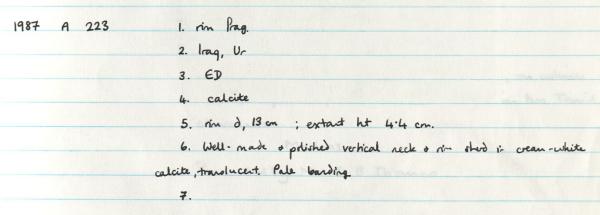 1987 A 223 1. rim Frag.
2. Iraq, Ur
3. ED
4. calcite
5. rim d, 13 cm ; extant ht 4.4 cm.
6. Well-made & polished vertical neck & rim sherd in cream-white
calcite, translucent. Pale banding
7.